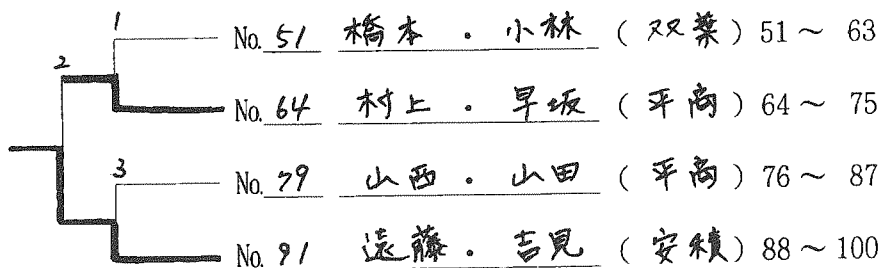 1
No. 51 橋本 ・ 小林 ( 双葉 ) 51 ～ 63
2
No. 64 村上 ・ 早坂 ( 平商 ) 64 ～ 75
3
No. 79 山西 ・ 山田 ( 平商 ) 76 ～ 87
No. 91 遠藤 ・ 吉見 ( 安積 ) 88 ～ 100